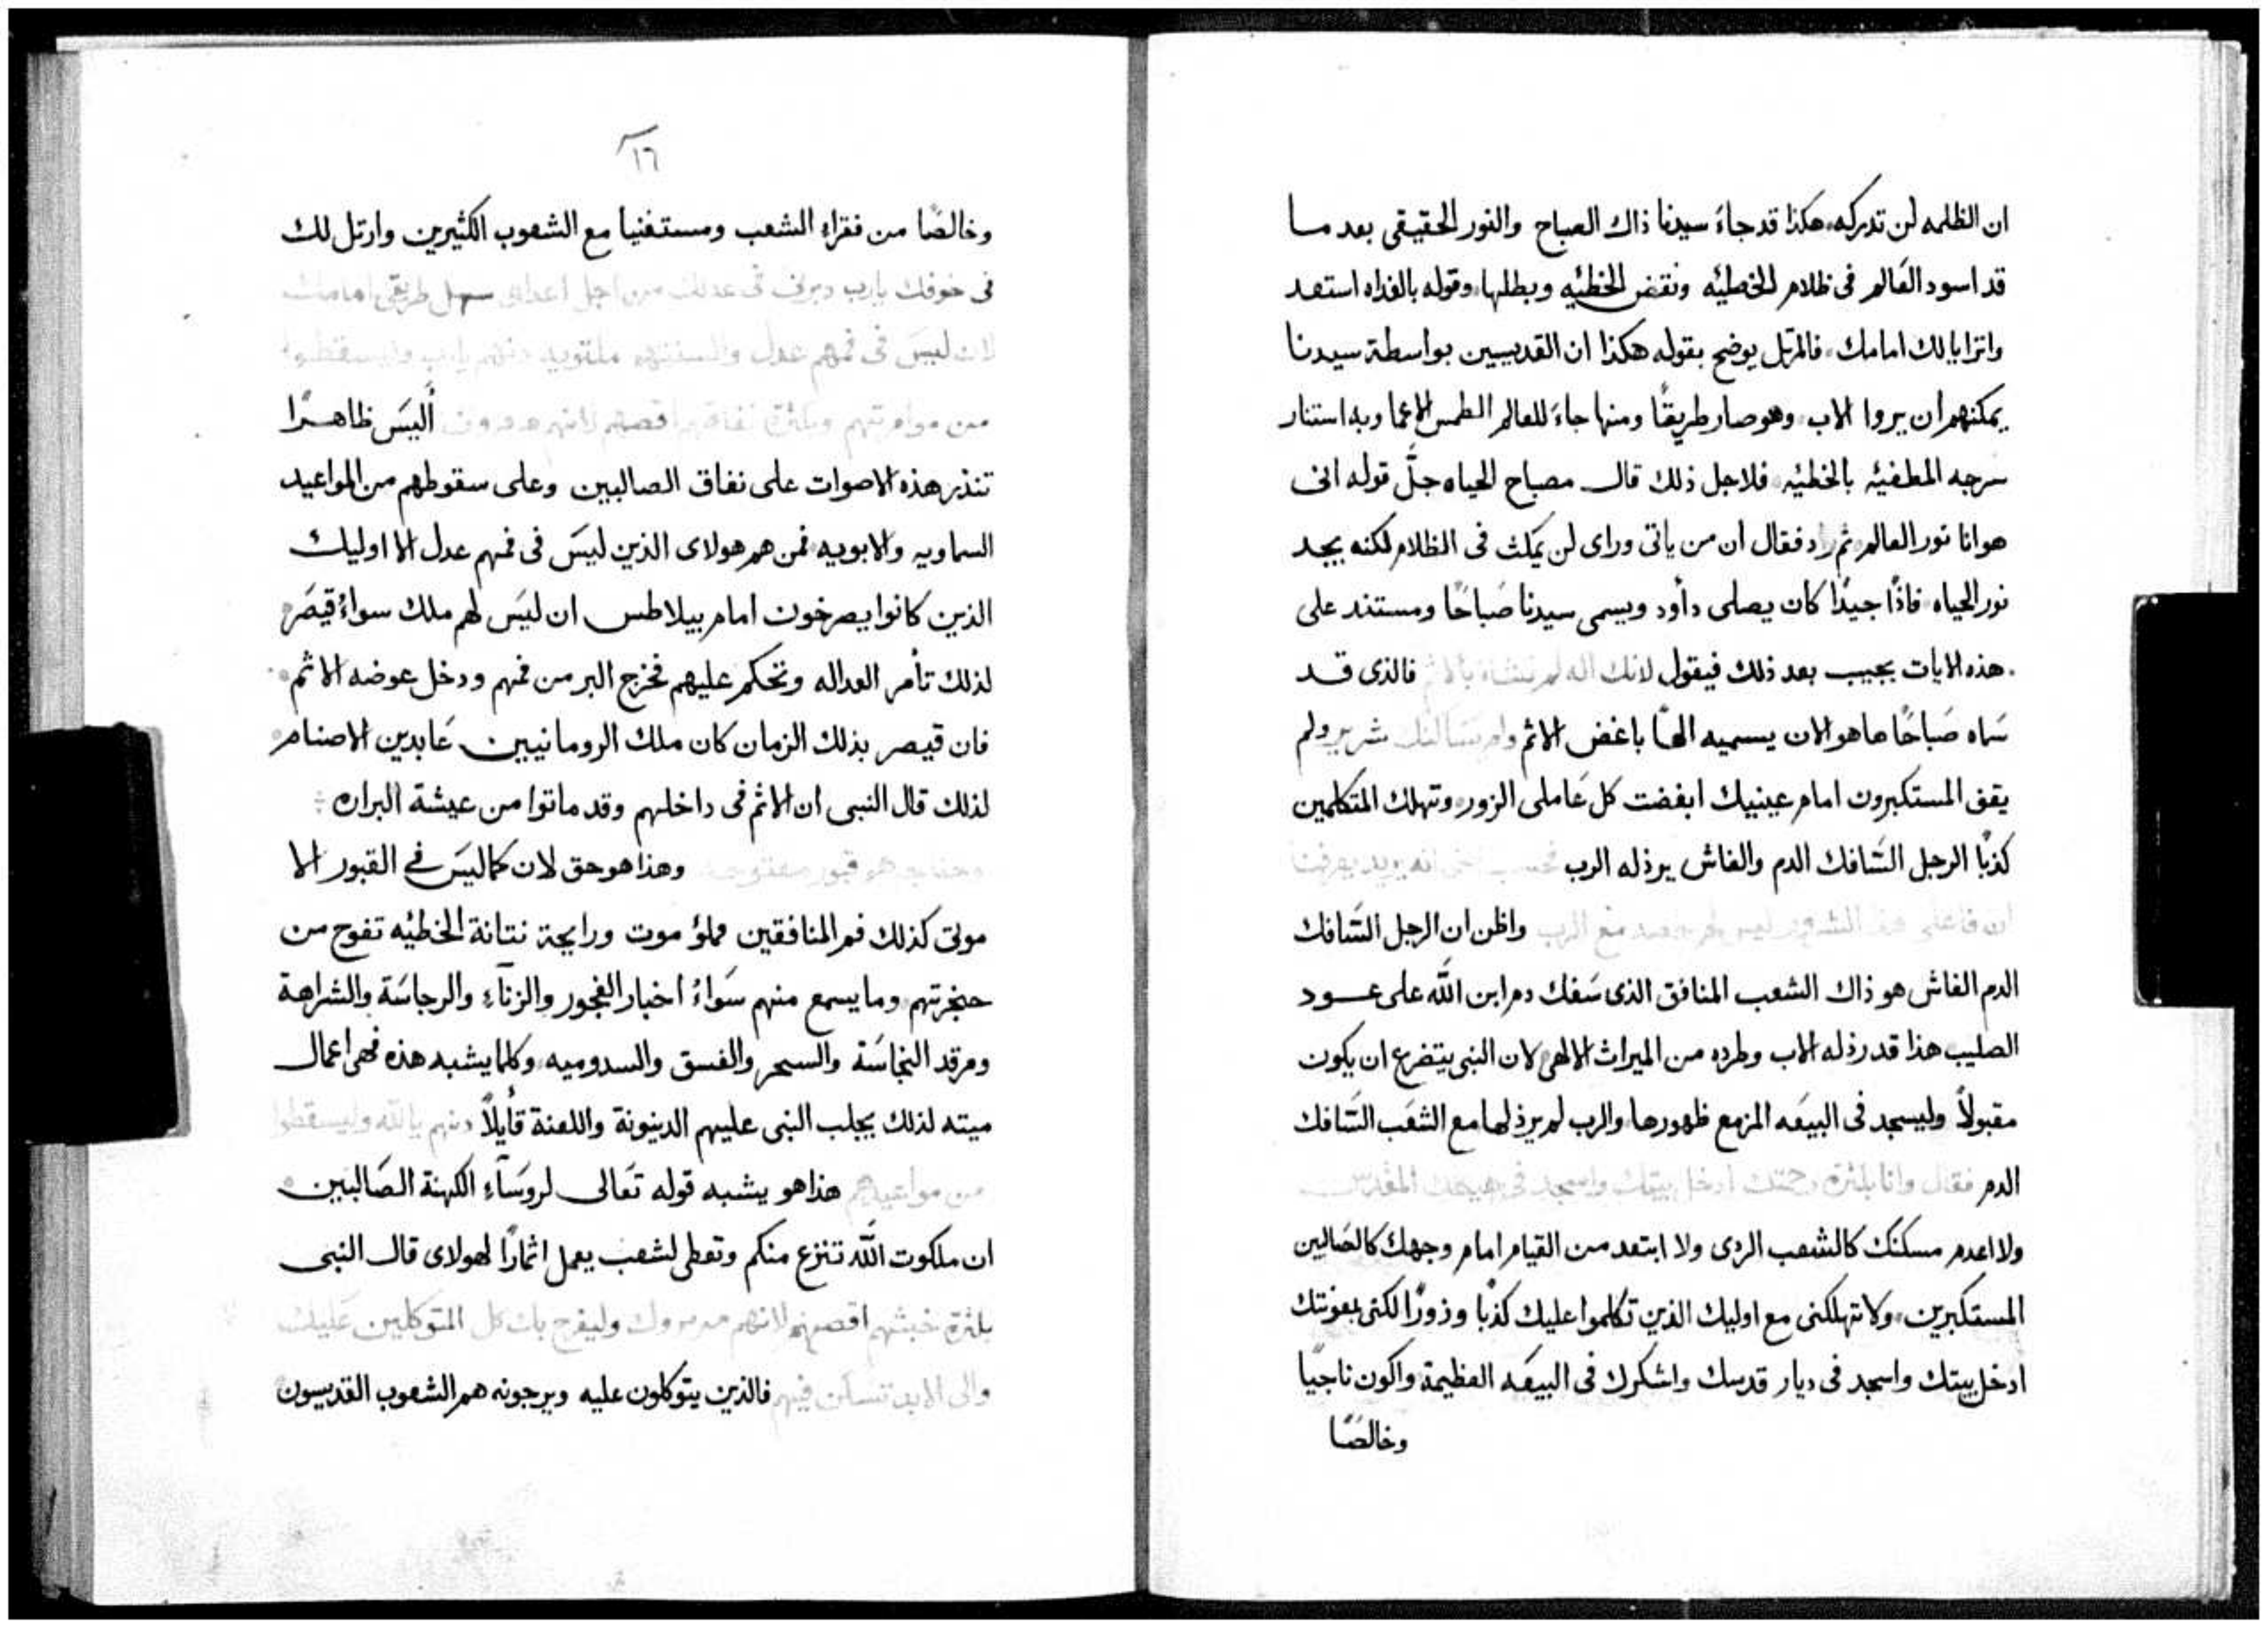 ان الظلمه لن تدركه هكذا قد جاءَ سيدنا ذاك الصباح والنور الحقيقى بعد ما
قد اسود العَالم فى ظلام الخطيّه ونقض الخطيّه وبطلها وقوله بالغداه استعد
واترايا لك امامك فالمرتل يوضح بقوله هكذا ان القديسين بواسطة سيدنا
يمكنهم ان يروا الاب وهو صار طريقًا ومنها جاءَ للعالم الطمس الاعما وبه استنار
سرجه المطفيّه بالخطيّه فلاجل ذلك قال مصباح الحياه جلَّ قوله انى
هو انا نور العالم ثم زاد فقال ان من ياتى وراى لن يمكث فى الظلام لكنه يجد
نور الحياه فاذًا جيدًا كان يصلى دأود ويسمى سيدنا صَباحًا ومستند على
هذه الايات يجيب بعد ذلك فيقول لانك اله لم تشاء بالاثم فالذى قد
سَماه صَباحًا ها هو الان يسميه الهًا باغض الاثم ولم شرير ولم
يقف المستكبرون امام عينيك ابغضت كل عَاملى الزور وتهلك المتكلمين
كذبًا الرجل السَافك الدم والغاش يرذله الرب
ان فاعلى هذه الشرور ليس مع الرب واظن ان الرجل السَافك
الدم الغاش هو ذاك الشعب المنافق الذى سَفك دم ابن اللّه على عود
الصليب هذا قد رذله الاب وطرده من الميراث الالهى لان النبى يتضرع ان يكون
مقبولاً وليسجد فى البيعَه المزمع ظهورها والرب لم يرذلها مع الشعَب السَافك
الدم فقال وانا بكثرة رحمتك ادخل بيتك واسجد فى هيكلك المقدس
ولا اعدم مسكنك كالشعب الردى ولا ابتعد من القيام امام وجهك كالضالين
المستكبرين ولا تهلكنى مع اوليك الذين تكلموا عليك كذبًا وزورًا لكنى بمعونتك
ادخل بيتك واسجد فى ديار قدسك واشكرك فى البيعَه العظيمة واكون ناجيًا
وخالصًا
١٦
وخالصًا من فقراءِ الشعب ومستغنيا مع الشعوب الكثيرين وارتل لك
فى خوفك يارب دبرنى فى عدلك من اجل اعداى سهل طريقى امامك
لان ليسَ فى فمهم عدل والسنتهم ملتويه دنهم يارب وليسقطوا
من موامرتهم وبكثرة نفاقهم اقصهم لانهم أليسَ ظاهرًا
تنذر هذه الاصوات على نفاق الصالبين وعلى سقوطهم من المواعيد
السماويه والابويه فمن هم هولاى الذين ليسَ فى فمهم عدل الا اوليك
الذين كانوا يصرخون امام بيلاطس ان ليسَ لهم ملك سواءُ قيصَر
لذلك تأمر العداله وتحكم عليهم فخرج البر من فمهم ودخل عوضه الاثم
فان قيصر بذلك الزمان كان ملك الرومانيين عَابدين الاصنام
لذلك قال النبى ان الاثم فى داخلهم وقد ماتوا من عيشة البراره
وحناجرهم قبور مفتوحه وهذا هو حق لان كما ليسَ فى القبور الا
موتى كذلك فم المنافقين مملؤ موت ورايحة نتانة الخطيّه تفوح من
حنجرتهم وما يسمع منهم سَواءُ اخبار الفجور والزنآءِ والرجاسَة والشراهة
ومرقد النجاسَة والسحر والفسق والسدوميه وكلما يشبه هذه فهى اعمال
ميته لذلك يجلب النبى عليهم الدينونة واللعنة قايلاً دنهم يا اللّه وليسقطوا
من مواعيدهم هذا هو يشبه قوله تَعالى لروسَآءِ الكهنة الصَالبين
ان ملكوت اللّه تنزع منكم وتعطى لشعب يعمل اثمارًا لهولاى قال النبى
بكثرة خبثهم اقصهم لانهم مرمروك وليفرح بك كل المتوكلين عَليك
والى الابد تسكن فيهم فالذين يتوكلون عليه ويرجونه هم الشعوب القديسون